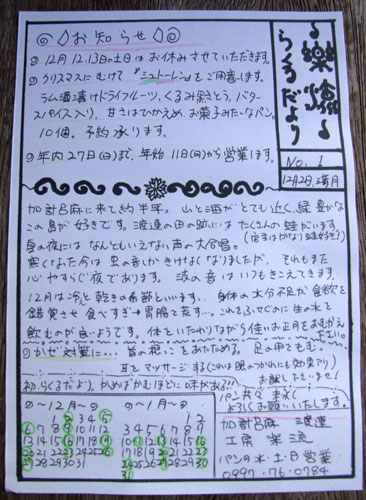 樂流
らくるだより
No. 1
12月2日、満月
お知らせ
12月12.13日の土日はお休みさせていただきます。
クリスマスにむけて『シュトーレン』をご用意します。
ラム酒漬けドライフルーツ、くるみ、きとう、バター
スパイス入り。甘さはひかえめ、お菓子みたいなパン。
10個。予約承ります。
年内27日(日)まで、年始11日(月)から営業します。
加計呂麻に来て約半年。山と海がとても近く、緑豊かな
この島が好きです。渡連の田の跡にはたくさんの蛙がいます。
夏の夜にはなんともいえない声の大合唱。
寒くなった今は 虫の音しかきけなくなりましたが、それもまた
心やすらぐ夜であります。波の音はいつもきこえてきます。
12月は冷と乾きの季節といいます。身体の水分不足が食欲を
錯覚させ 食べすぎ→胃腸を荒す…。これをふせぐのに生の水を
飲むのが良いようです。体をいたわりながら佳いお正月をおむかえ
下さい。
かぜ対策に… 首の想いところをあたためる。足の甲をもむ。
耳をマッサージする(これは腕のつかれにも効果アリ)
お試し下さいませ!
初.らくるだより。かめばかむほどに味がある!!
パン共々末永く
よろしくお願いいたします。
加計呂麻 渡連
工房 楽流
パンの木・土日営業
0997-76-0784
~12月~
1 2 3 4 5
6 7 8 9 10 11 12
13 14 15 16 17 18 19
20 21 22 23 24 25 26
27 28 29 30 31
~1月~
1 2
3 4 5 6 7 8 9
10 11 12 13 14 15 16
17 18 19 20 21 22 23
24 25 26 27 28 29 30
31